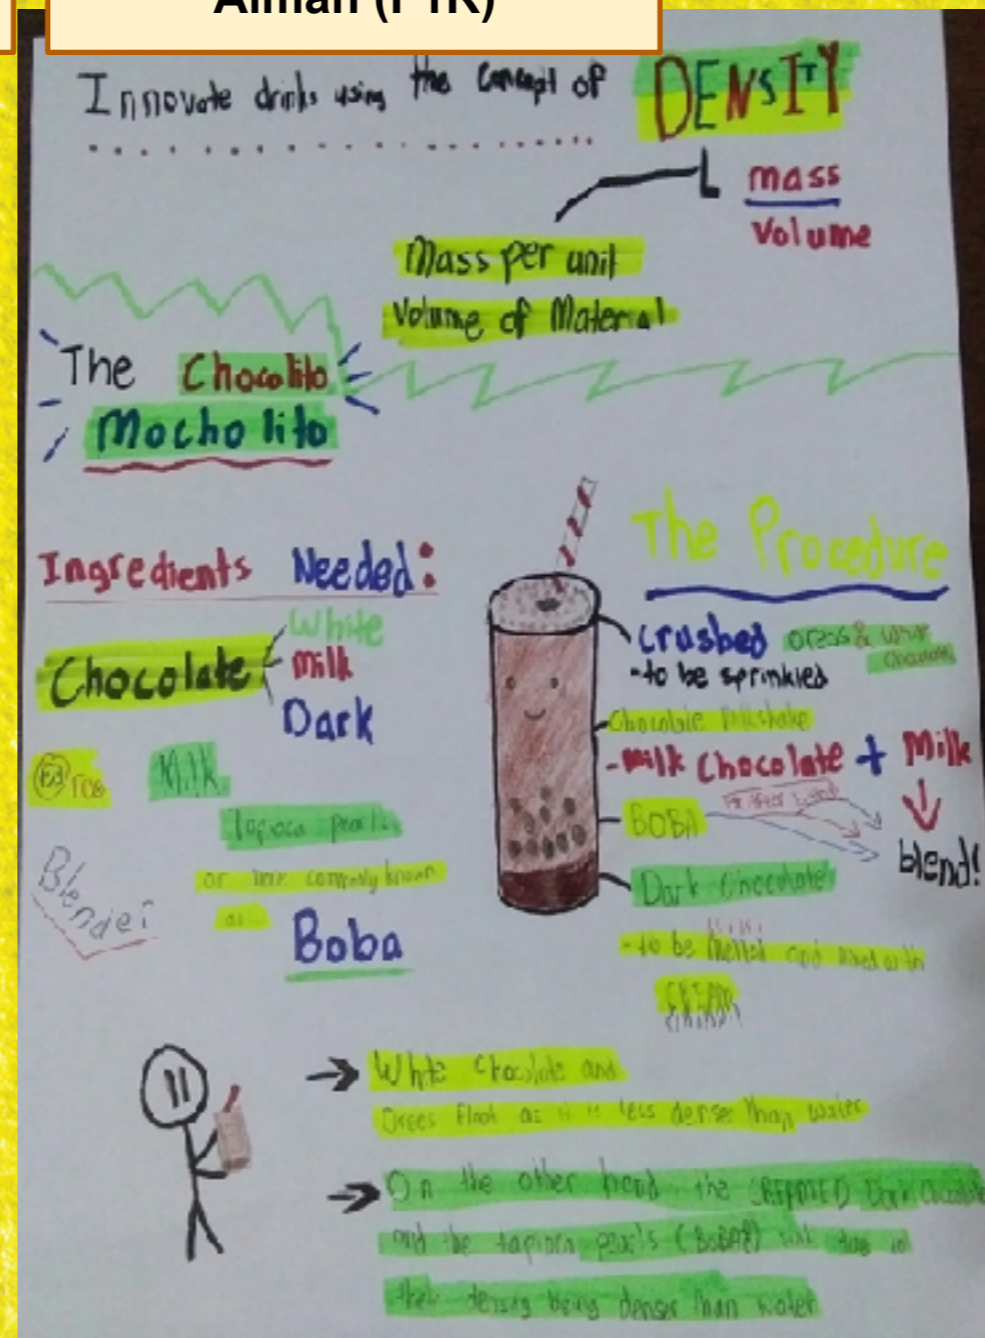 Aiman (PTR)
Innovate drinks using the concept of DENSITY
mass
Volume
Mass per unit
Volume of Material
The Chocolito
Mocholito
Ingredients Needed:
Chocolate
White
Milk
Dark
Milk
Tapioca pearls
or more commonly known
as...
Boba
Blender
The Procedure
Crushed oreos & White
Chocolate
-to be sprinkled
Chocolate Milkshake
-Milk Chocolate + Milk
blend!
BOBA
Dark Chocolate
-to be melted and mixed with
CREAM
White Chocolate and
Oreos float as it is less denser than water
On the other hand, the Dark Chocolate
and the tapioca pearls sink due to
their density being denser than water